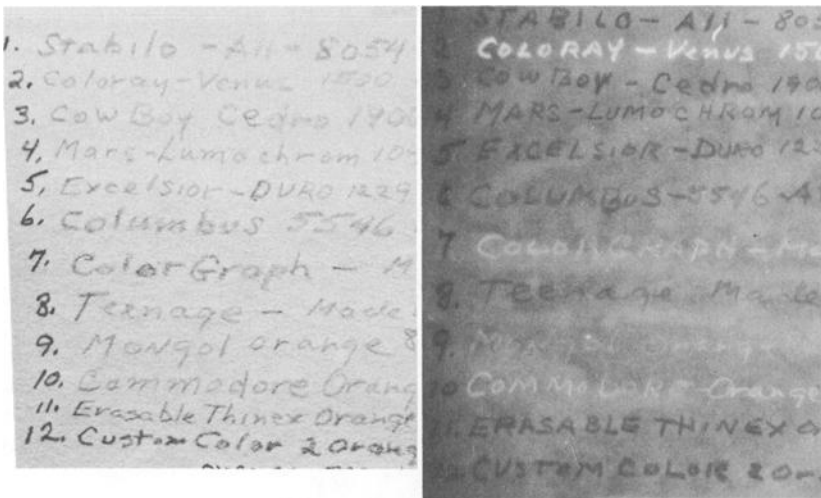 1. Stabilo - All - 8054
2. Coloray - Venus 1500
3. CowBoy Cedro 1900
4. Mars-Lumochrom 10
5. Excelsior-DURO 1229
6. Columbus 5546
7. ColorGraph - M
8. Teenage - Made
9. Mongol Orange 8
10. Commodore Orang
11. Erasable Thinex Orange
12. Custom Color 2 Orang
1 STABILO - All - 805
2 COLORAY - Venus 150
3 COWBOY - Cedro 190
4 MARS-LUMOCHROM 10
5 EXCELSIOR - DURO 122
6 COLUMBUS-5546-A
7 COLORGRAPH - M
8. Teenage Made
9. Mongol Orange
10 COMMODORE Orange
11. ERASABLE THINEX O
12. CUSTOM COLOR 2 Or